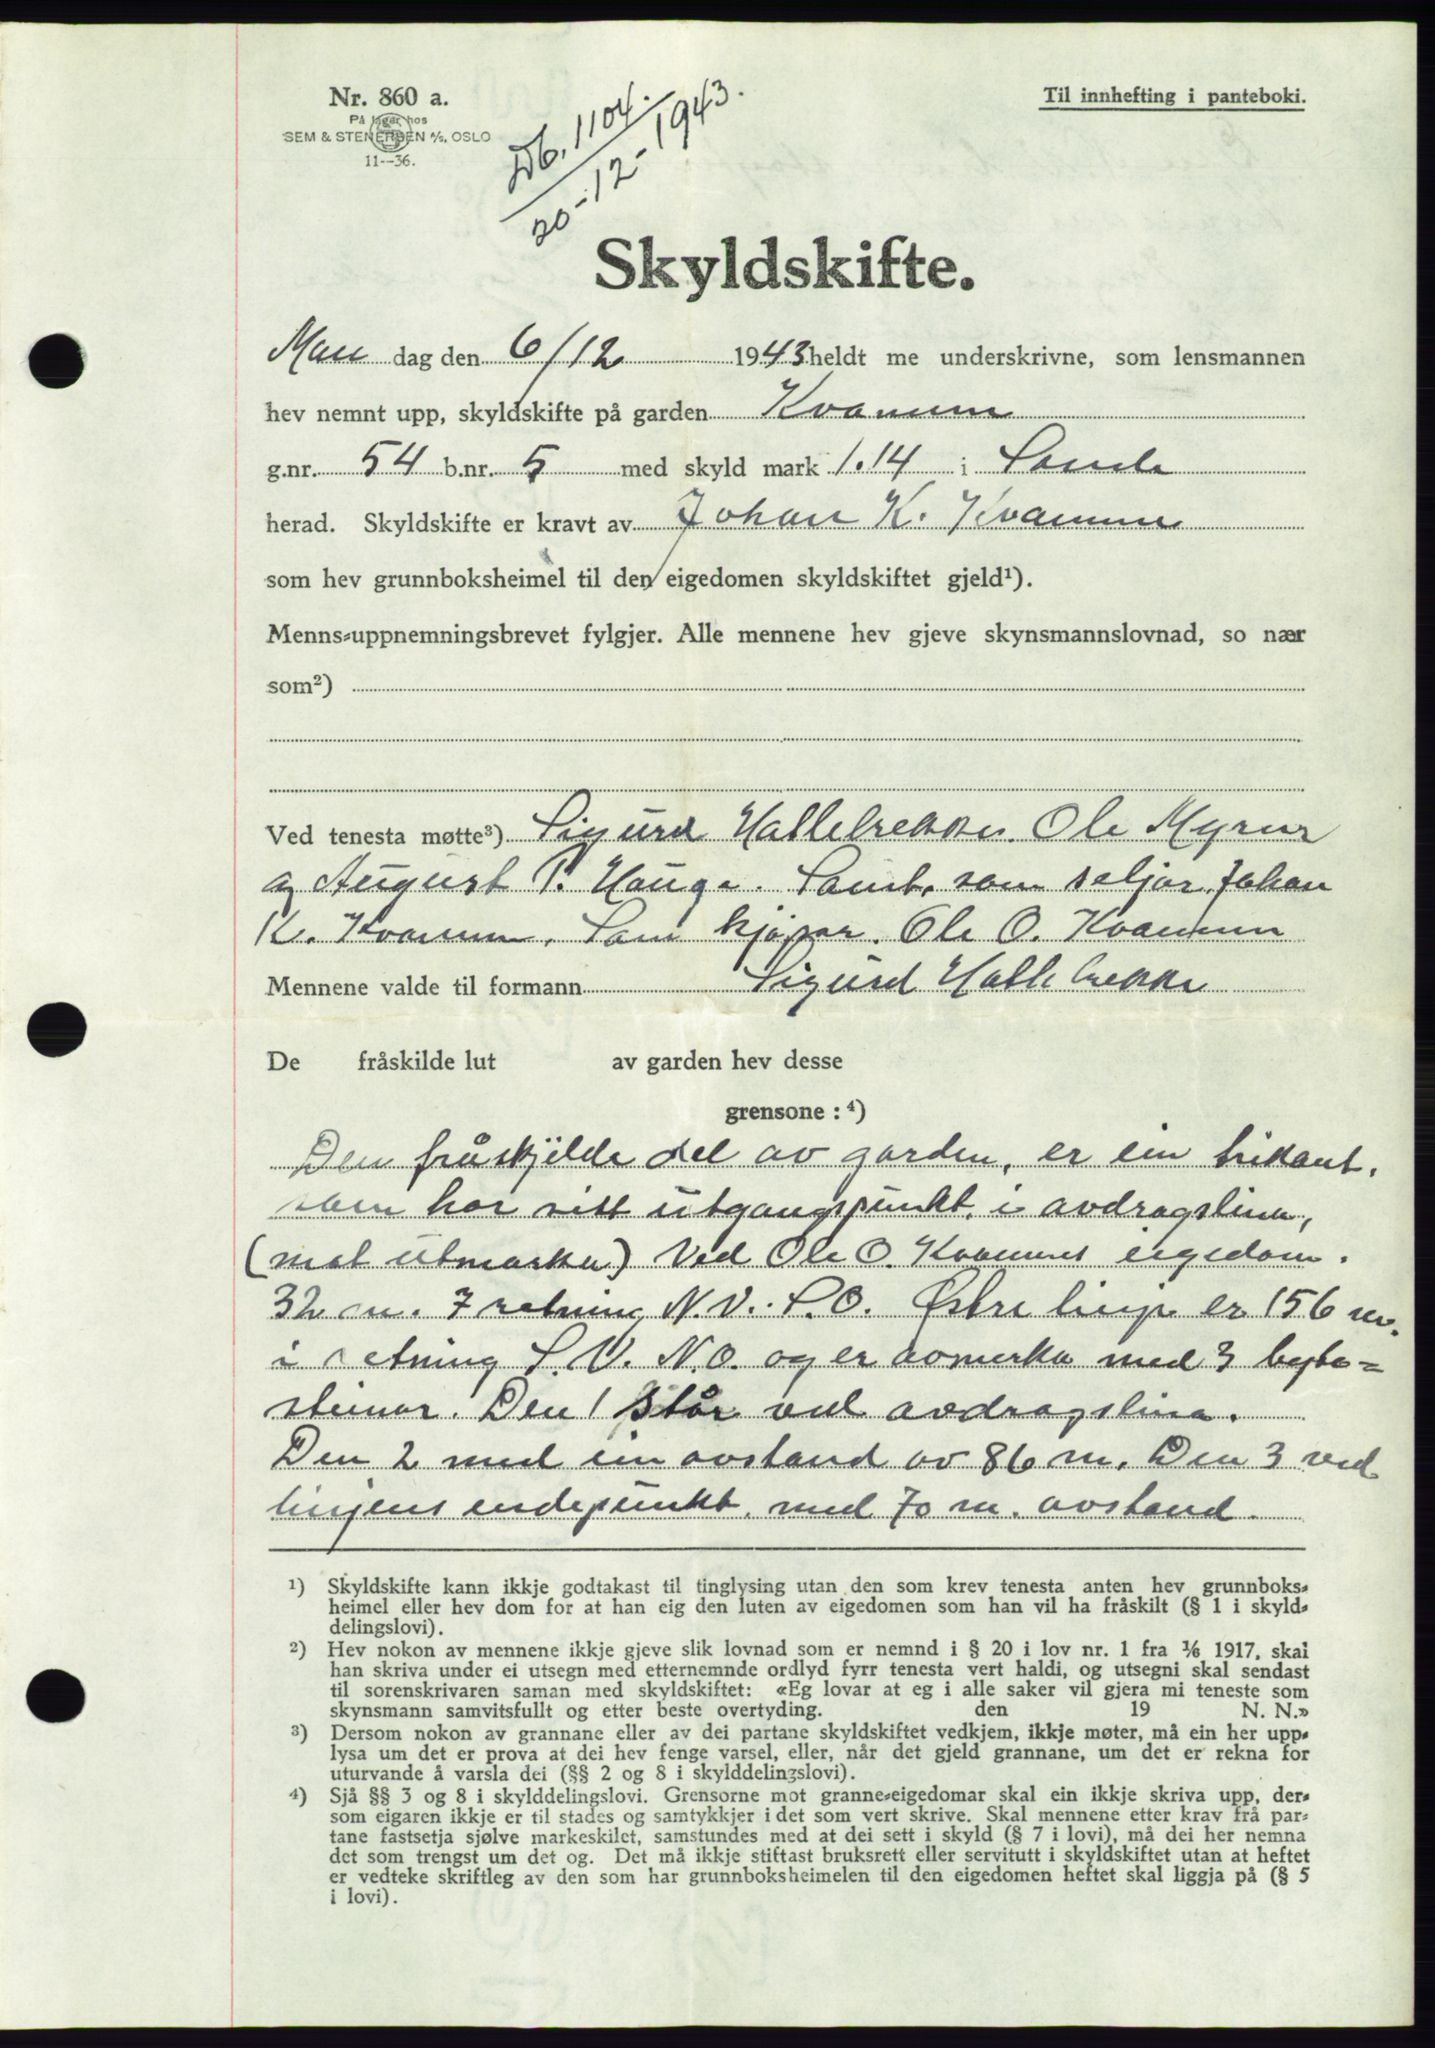 Nr. 860 a.
På lager hos
SEM & STENERSEN A/S, OSLO
11--36.
Til innhefting i panteboki.
Db. 1104.
20-12-1943.
Skyldskifte.
Man dag den 6/12 1943 heldt me underskrivne, som lensmannen
hev nemnt upp, skyldskifte på garden Kvamm
g.nr. 54 b.nr. 5 med skyld mark 1.14 i Sande
herad. Skyldskifte er kravt av Johan K. Kvamm
som hev grunnboksheimel til den eigedomen skyldskiftet gjeld¹).
Menns-uppnemningsbrevet fylgjer. Alle mennene hev gjeve skynsmannslovnad, so nær
som²)
Ved tenesta møtte³) Sigurd Hallebrekke. Ole Myren
og August P. Hauge. Samt, som seljar Johan
K. Kvamm. Som kjöpar. Ole O. Kvamm
Mennene valde til formann Sigurd Hallebrekke
De fråskilde lut av garden hev desse
grensone : ⁴)
Den fråskjilde del av garden, er ein trikant,
som har sitt utgangspunkt i avdragslina,
(mot utmarka) Ved Ole O. Kvamms eigedom.
32 m. I retning N.V. S.O. Østre linje er 156 m.
i retning S.V. N.O. og er avmerka med 3 byte=
steinar. Den 1 står ved avdragslina.
Den 2 med ein avstand av 86 m. Den 3 ved
linjens endepunkt, med 70 m. avstand.
¹) Skyldskifte kann ikkje godtakast til tinglysing utan den som krev tenesta anten hev grunnboks-
heimel eller hev dom for at han eig den luten av eigedomen som han vil ha fråskilt (§ 1 i skyld-
delingslovi).
²) Hev nokon av mennene ikkje gjeve slik lovnad som er nemnd i § 20 i lov nr. 1 fra 1/6 1917, skal
han skriva under ei utsegn med etternemnde ordlyd fyrr tenesta vert haldi, og utsegni skal sendast
til sorenskrivaren saman med skyldskiftet: «Eg lovar at eg i alle saker vil gjera mi teneste som
skynsmann samvitsfullt og etter beste overtyding. den 19 N. N.»
³) Dersom nokon av grannane eller av dei partane skyldskiftet vedkjem, ikkje møter, må ein her upp-
lysa um det er prova at dei hev fenge varsel, eller, når det gjeld grannane, um det er rekna for
uturvande å varsla dei (§§ 2 og 8 i skylddelingslovi).
⁴) Sjå §§ 3 og 8 i skylddelingslovi. Grensorne mot granne-eigedomar skal ein ikkje skriva upp, der-
som eigaren ikkje er til stades og samtykkjer i det som vert skrive. Skal mennene etter krav frå par-
tane fastsetja sjølve markeskilet, samstundes med at dei sett i skyld (§ 7 i lovi), må dei her nemna
det som trengst um det og. Det må ikkje stiftast bruksrett eller servitutt i skyldskiftet utan at heftet
er vedteke skriftleg av den som har grunnboksheimelen til den eigedomen heftet skal liggja på (§ 5
i lovi).